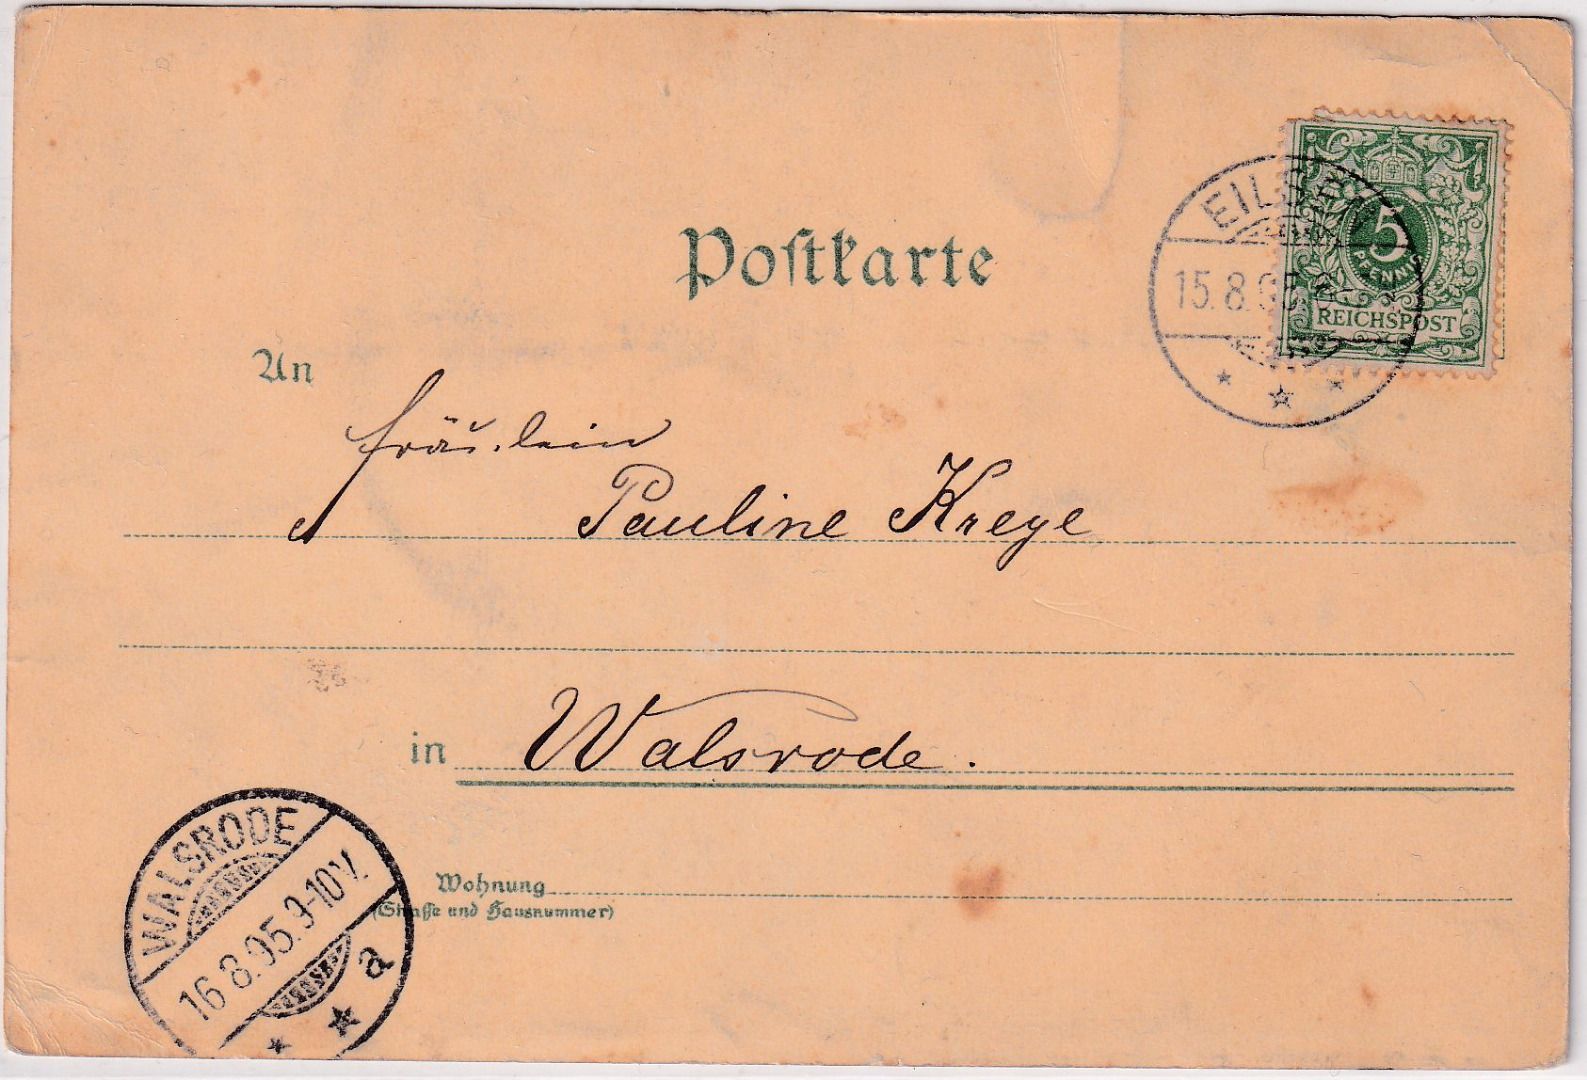 Postkarte
5
PFENNIG
REICHSPOST
15.8.95
An
Fräulein
Pauline Kreye
in Walsrode.
Wohnung
(Straße und Hausnummer)
WALSRODE
16.8.95.9-10V.
a